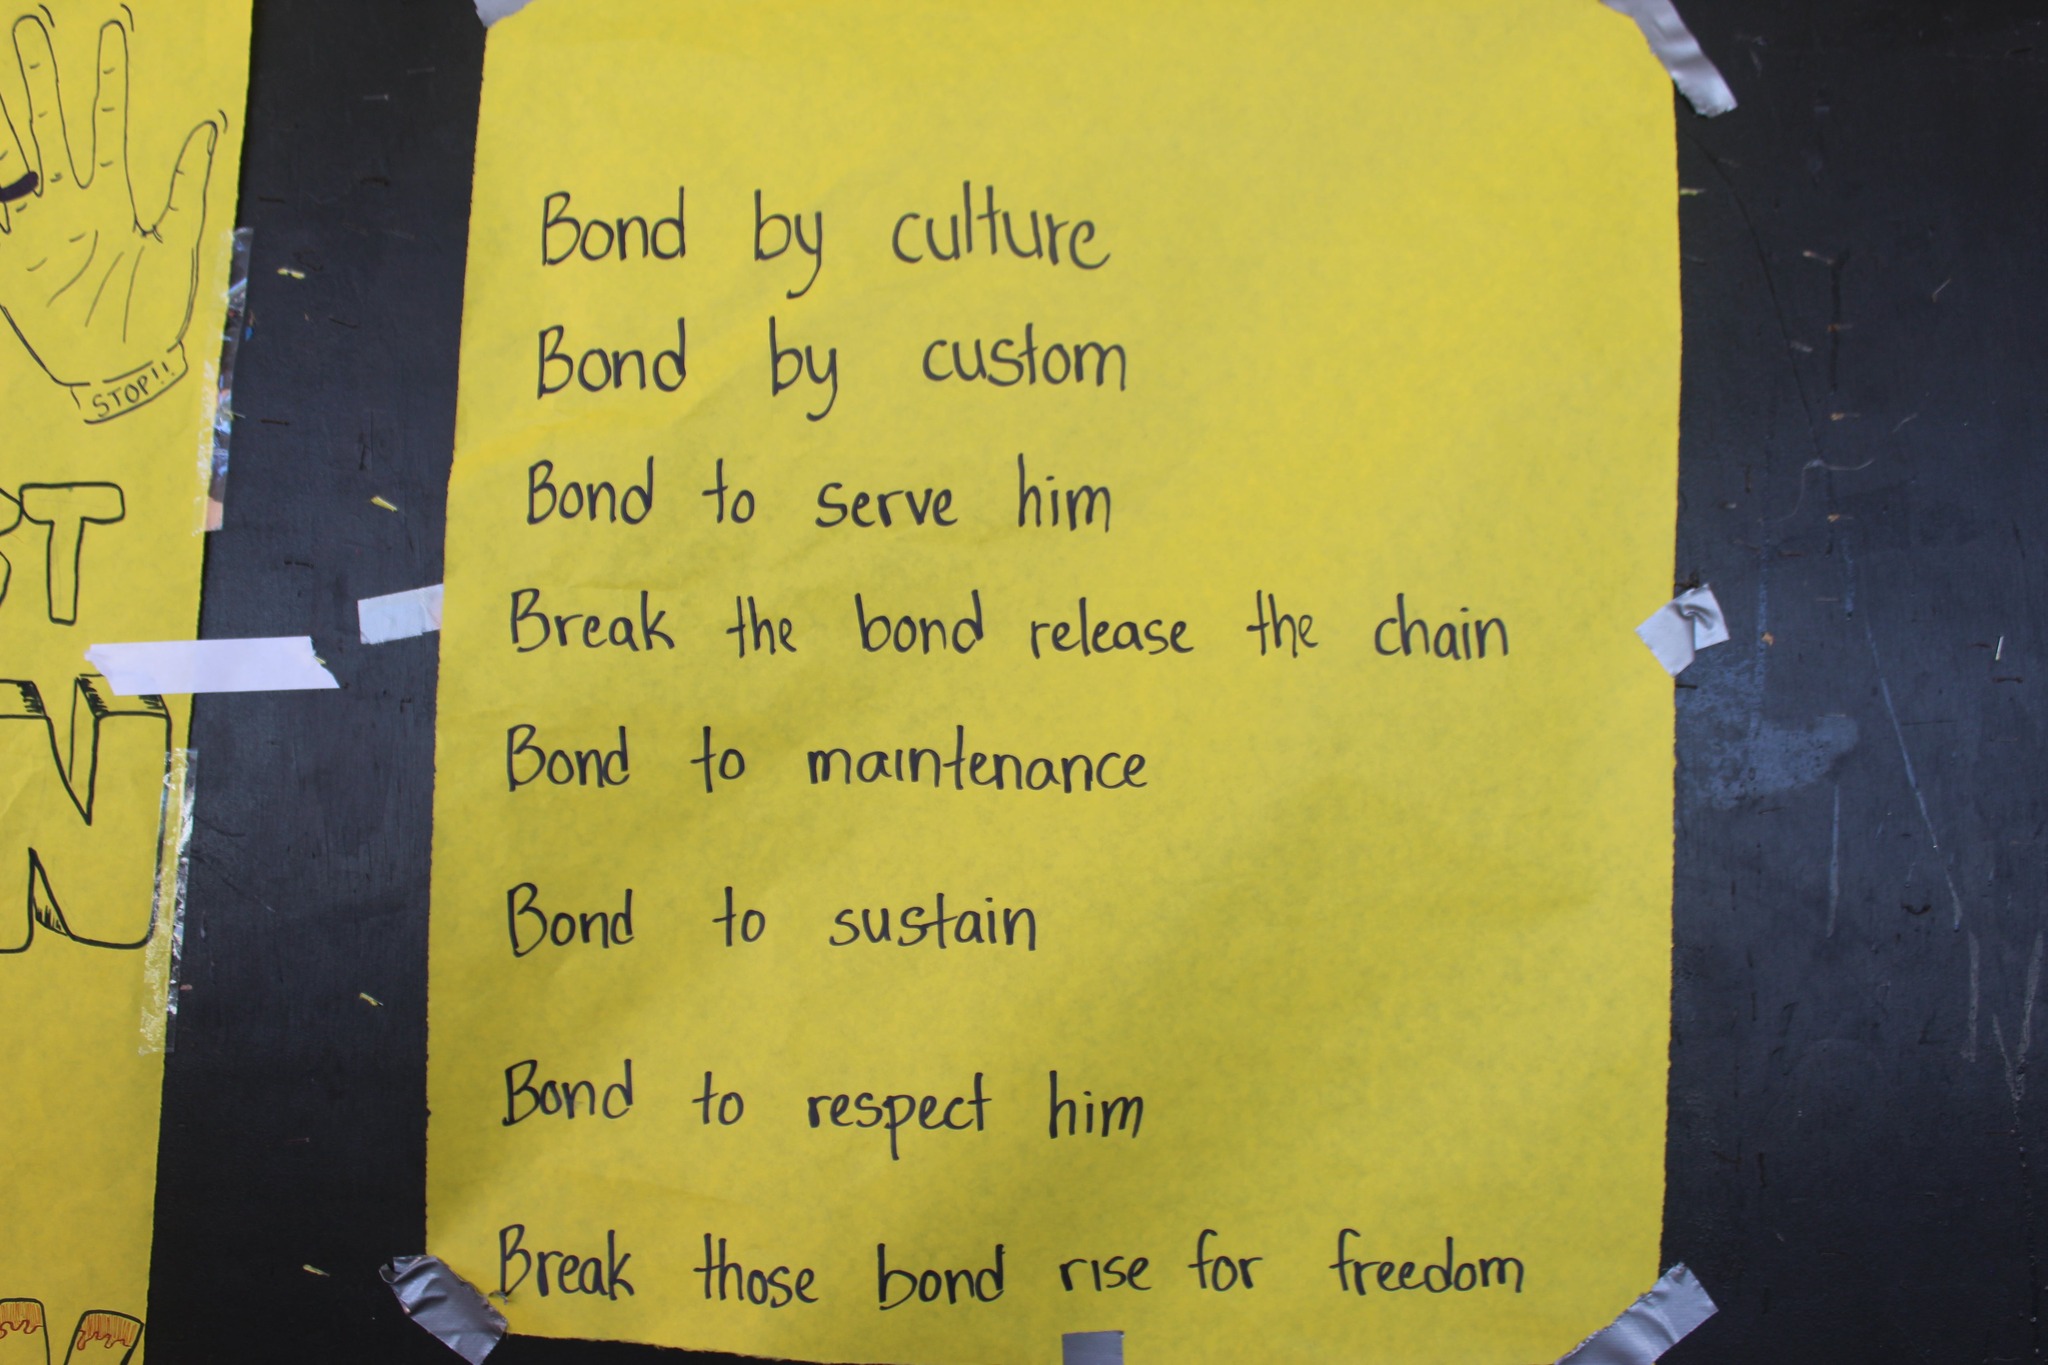 STOP!!
T
N
Bond by culture
Bond by custom
Bond to serve him
Break the bond release the chain
Bond to maintenance
Bond to sustain
Bond to respect him
Break those bond rise for freedom